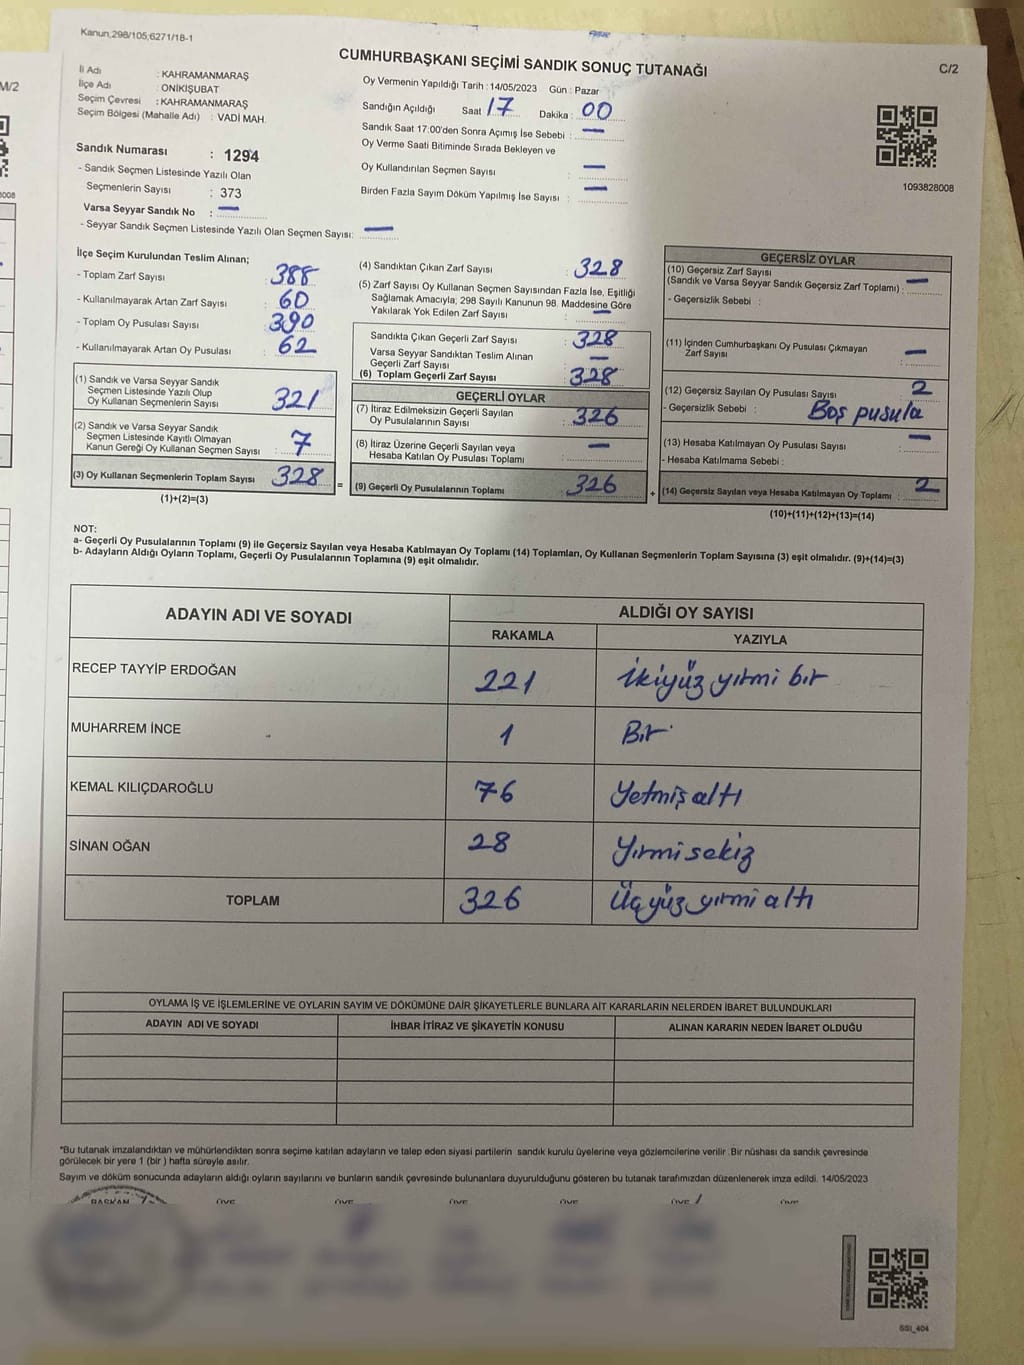 Kanun;298/105;6271/18-1
CUMHURBAŞKANI SEÇİMİ SANDIK SONUÇ TUTANAĞI
C/2
M/2
İl Adı : KAHRAMANMARAŞ
İlçe Adı : ONİKİŞUBAT
Seçim Çevresi : KAHRAMANMARAŞ
Seçim Bölgesi (Mahalle Adı) : VADİ MAH.
Sandık Numarası : 1294
- Sandık Seçmen Listesinde Yazılı Olan
Seçmenlerin Sayısı : 373
Varsa Seyyar Sandık No : —
- Seyyar Sandık Seçmen Listesinde Yazılı Olan Seçmen Sayısı: —
Oy Vermenin Yapıldığı Tarih : 14/05/2023 Gün : Pazar
Sandığın Açıldığı Saat 17 Dakika : 00
Sandık Saat 17:00'den Sonra Açımış İse Sebebi : —
Oy Verme Saati Bitiminde Sırada Bekleyen ve
Oy Kullandırılan Seçmen Sayısı : —
Birden Fazla Sayım Döküm Yapılmış İse Sayısı : —
1093828008
İlçe Seçim Kurulundan Teslim Alınan;
- Toplam Zarf Sayısı : 388
- Kullanılmayarak Artan Zarf Sayısı : 60
- Toplam Oy Pusulası Sayısı : 390
- Kullanılmayarak Artan Oy Pusulası : 62
(1) Sandık ve Varsa Seyyar Sandık
Seçmen Listesinde Yazılı Olup
Oy Kullanan Seçmenlerin Sayısı : 321
(2) Sandık ve Varsa Seyyar Sandık
Seçmen Listesinde Kayıtlı Olmayan
Kanun Gereği Oy Kullanan Seçmen Sayısı : 7
(3) Oy Kullanan Seçmenlerin Toplam Sayısı : 328
(1)+(2)=(3)
=
(4) Sandıktan Çıkan Zarf Sayısı : 328
(5) Zarf Sayısı Oy Kullanan Seçmen Sayısından Fazla İse, Eşitliği
Sağlamak Amacıyla; 298 Sayılı Kanunun 98. Maddesine Göre
Yakılarak Yok Edilen Zarf Sayısı : —
Sandıkta Çıkan Geçerli Zarf Sayısı : 328
Varsa Seyyar Sandıktan Teslim Alınan
Geçerli Zarf Sayısı : —
(6) Toplam Geçerli Zarf Sayısı : 328
GEÇERLİ OYLAR
(7) İtiraz Edilmeksizin Geçerli Sayılan
Oy Pusulalarının Sayısı : 326
(8) İtiraz Üzerine Geçerli Sayılan veya
Hesaba Katılan Oy Pusulası Toplamı : —
(9) Geçerli Oy Pusulalarının Toplamı : 326
+
GEÇERSİZ OYLAR
(10) Geçersiz Zarf Sayısı
(Sandık ve Varsa Seyyar Sandık Geçersiz Zarf Toplamı) : —
- Geçersizlik Sebebi :
(11) İçinden Cumhurbaşkanı Oy Pusulası Çıkmayan
Zarf Sayısı : —
(12) Geçersiz Sayılan Oy Pusulası Sayısı : 2
- Geçersizlik Sebebi : Boş pusula
(13) Hesaba Katılmayan Oy Pusulası Sayısı : —
- Hesaba Katılmama Sebebi :
(14) Geçersiz Sayılan veya Hesaba Katılmayan Oy Toplamı : 2
(10)+(11)+(12)+(13)=(14)
NOT:
a- Geçerli Oy Pusulalarının Toplamı (9) ile Geçersiz Sayılan veya Hesaba Katılmayan Oy Toplamı (14) Toplamları, Oy Kullanan Seçmenlerin Toplam Sayısına (3) eşit olmalıdır. (9)+(14)=(3)
b- Adayların Aldığı Oyların Toplamı, Geçerli Oy Pusulalarının Toplamına (9) eşit olmalıdır.
ADAYIN ADI VE SOYADI ALDIĞI OY SAYISI
RAKAMLA YAZIYLA
RECEP TAYYİP ERDOĞAN 221 İkiyüz yirmi bir
MUHARREM İNCE 1 Bir
KEMAL KILIÇDAROĞLU 76 Yetmiş altı
SİNAN OĞAN 28 Yirmi sekiz
TOPLAM 326 Üçyüz yirmi altı
OYLAMA İŞ VE İŞLEMLERİNE VE OYLARIN SAYIM VE DÖKÜMÜNE DAİR ŞİKAYETLERLE BUNLARA AİT KARARLARIN NELERDEN İBARET BULUNDUKLARI
ADAYIN ADI VE SOYADI İHBAR İTİRAZ VE ŞİKAYETİN KONUSU ALINAN KARARIN NEDEN İBARET OLDUĞU
*Bu tutanak imzalandıktan ve mühürlendikten sonra seçime katılan adayların ve talep eden siyasi partilerin sandık kurulu üyelerine veya gözlemcilerine verilir .Bir nüshası da sandık çevresinde
görülecek bir yere 1 (bir ) hafta süreyle asılır.
Sayım ve döküm sonucunda adayların aldığı oyların sayılarını ve bunların sandık çevresinde bulunanlara duyurulduğunu gösteren bu tutanak tarafımızdan düzenlenerek imza edildi. 14/05/2023
BAŞKAN ÜYE ÜYE ÜYE ÜYE ÜYE ÜYE
SSI_404